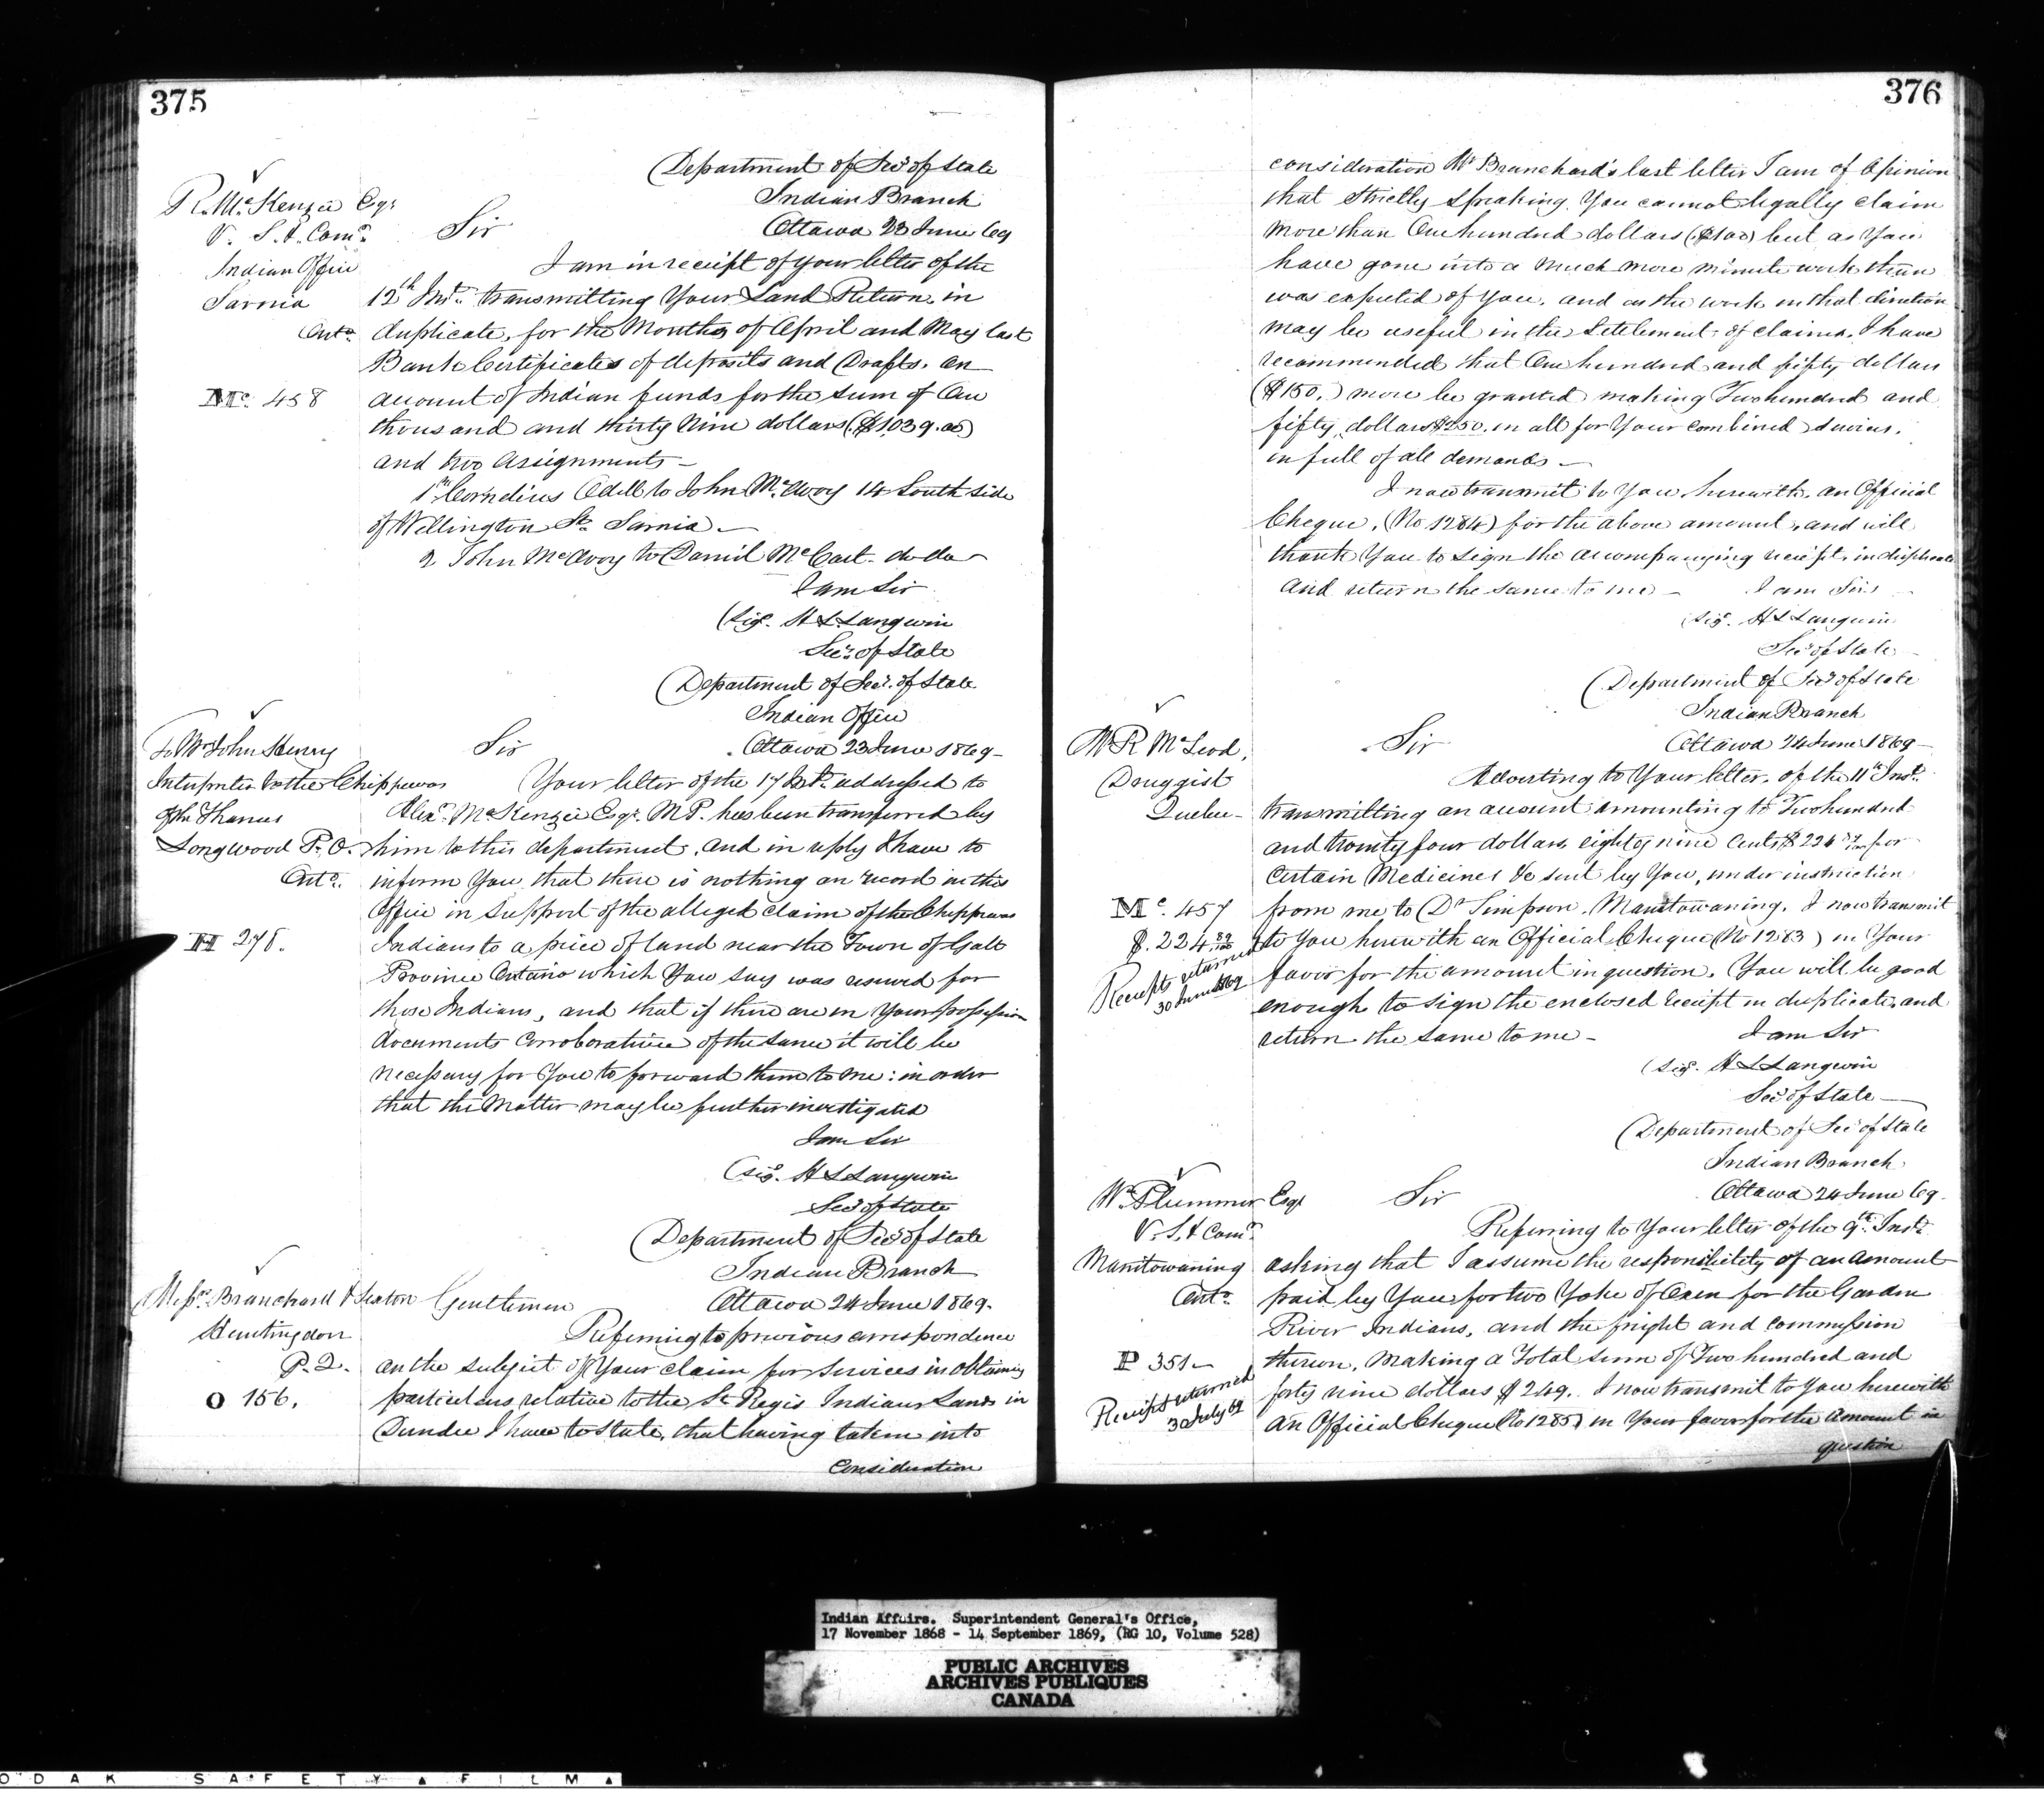 375
Department of Secy of State
Indian Branch
Ottawa 23 June 69
R. McKenzie Esqr
V. S. & Comr
Indian Office
Sarnia
Onto
Sir
I am in receipt of your letter of the
12th Inst. transmitting Your Land Return in
duplicate, for the Months of April and May last
Bank Certificates of deposits and Drafts, on
Mc. 458
account of Indian funds for the sum of One
thousand and thirty Nine dollars ($1039.00)
and two Assignments —
1st Cornelius Odell to John McAvoy 14 South side
of Wellington St. Sarnia —
2 John McAvoy to Daniel McCart. do do —
I am Sir
(Sig. H L Langevin
Secy of State
Department of Secy. of State
Indian Office
Ottawa 23 June 1869 —
To Mr John Henry
Interpreter to the Chippewas
of the Thames
Longwood P. O.
Onto.
Sir
Your letter of the 17 Inst. addressed to
Alexr. McKenzie Esqr. M.P. has been transferred by
him to this department, and in reply I have to
inform You that there is nothing on record in this
Office in Support of the alleged claim of the Chippewas
H 278.
Indians to a piece of land near the Town of Galt
Province Ontario which You say was reserved for
those Indians, and that if there are in Your possession
documents Corroborative of the same it will be
necessary for You to forward them to me: in order
that the Matter may be further investigated
I am Sir
(Sig. H L Langevin
Secy of State
Department of Secy of State
Indian Branch
Ottawa 24 June 1869.
Messrs. Branchard & Sexton
Huntingdon
P. Q.
Gentlemen
Referring to previous correspondence
on the subject of Your claim for services in obtaining
O 156.
particulars relative to the St Regis Indians Lands in
Dundee I have to state, that having taken into
Consideration
376
consideration Mr Branchard's last letter I am of Opinion
that Strictly Speaking You cannot legally claim
more than One hundred dollars ($100) but as You
have gone into a much more minute work than
was expected of you, and as the work in that direction
may be useful in the Settlement of claims, I have
recommended that One hundred and fifty dollars
($150.) more be granted making Two hundred and
fifty dollars $250. in all for Your combined services.
in full of all demands —
I now transmit to You herewith, an Official
Cheque, (No 1284) for the above amount, and will
thank You to sign the accompanying receipt, in duplicate
and return the same to me —
I am Sirs
(Sig. H L Langevin
Secy of State —
Department of Secy of State
Indian Branch
Ottawa 24 June 1869 —
Mr R McLeod,
Druggist
Quebec —
Sir
Adverting to Your letter, of the 11th Inst.
transmitting an account amounting to Two hundred
and twenty four dollars eighty nine cents $224 89/100 for
Certain Medicines &c sent by You, under instruction
Mc. 457
from me to Dr Simpson, Manitowaning. I now transmit
$. 224 89/100
to You herewith an Official Cheque (No 1283) in Your
Receipts returned
30 June 1869
favor for the amount in question. You will be good
enough to sign the enclosed receipt in duplicate and
return the same to me —
I am Sir
(Sig. H L Langevin
Secy of State —
Department of Secy of State
Indian Branch
Ottawa 24 June 69 —
Wm Plummer Esqr
V. S. & Comr
Manitowaning
Onto.
Sir
Referring to Your letter of the 9th Inst.
asking that I assume the responsibility of an amount
paid by You for two Yoke of Oxen for the Garden
River Indians, and the freight and Commission
P 351 —
thereon, making a Total sum of Two hundred and
Receipt returned
3 July 69
forty nine dollars $249. I now transmit to you herewith
an Official Cheque (No 1285) in Your favor for the amount in
question
Indian Affairs. Superintendent General's Office,
17 November 1868 - 14 September 1869, (RG 10, Volume 528)
PUBLIC ARCHIVES
ARCHIVES PUBLIQUES
CANADA
ODAK SAFETY ▲ FILM ▲